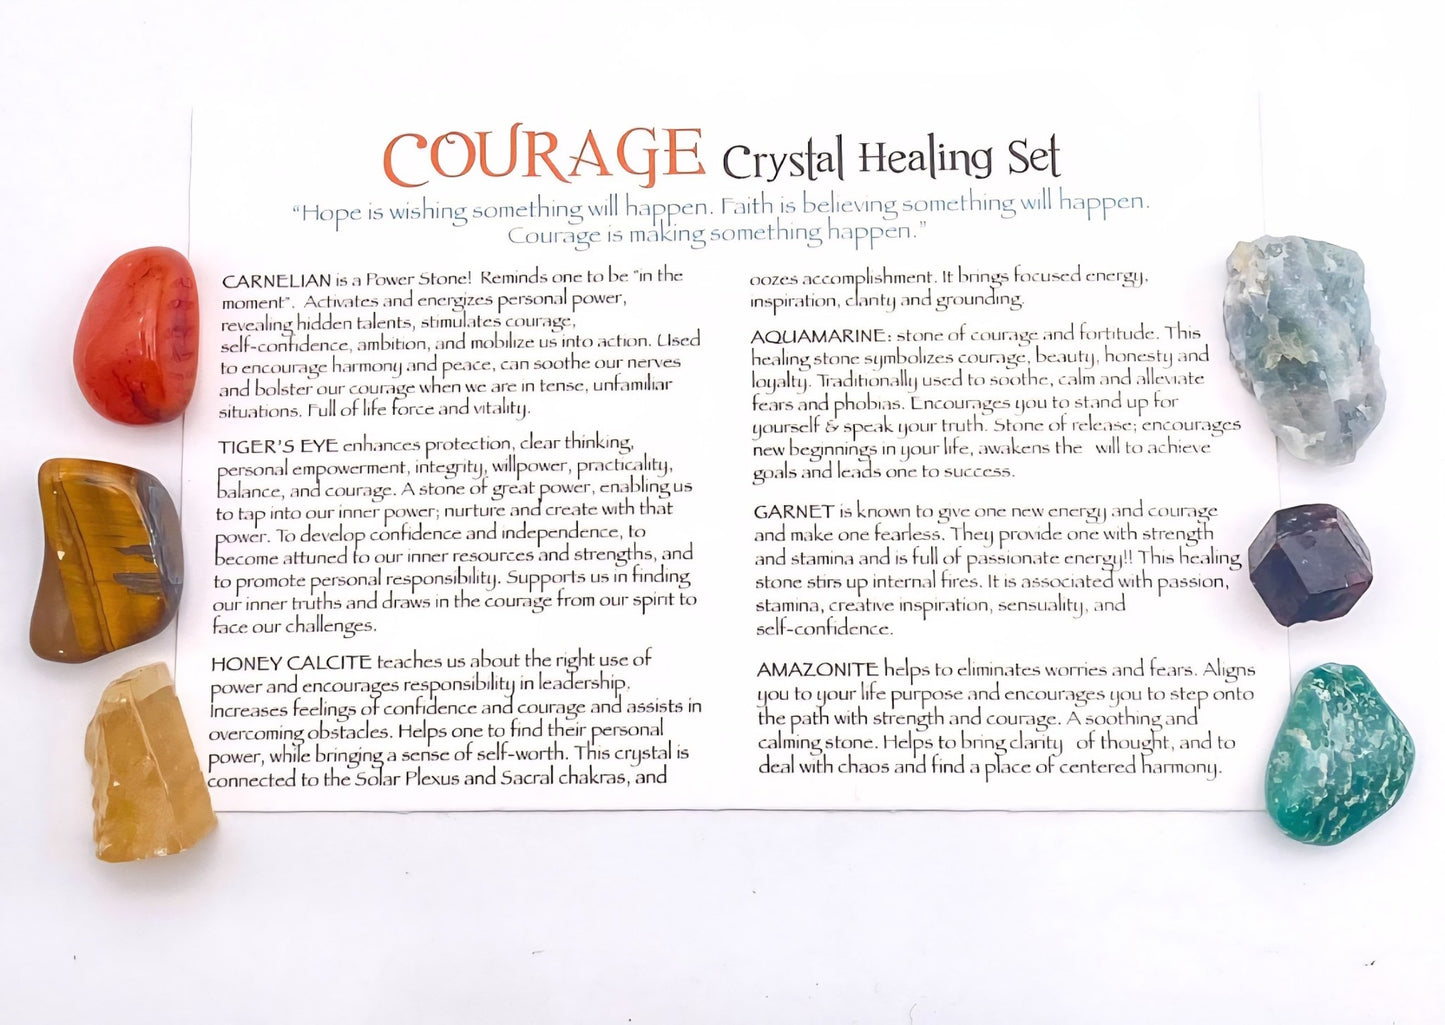 COURAGE Crystal Healing Set
“Hope is wishing something will happen. Faith is believing something will happen.
Courage is making something happen.”
CARNELIAN is a Power Stone! Reminds one to be "in the
moment". Activates and energizes personal power,
revealing hidden talents, stimulates courage,
self-confidence, ambition, and mobilize us into action. Used
to encourage harmony and peace, can soothe our nerves
and bolster our courage when we are in tense, unfamiliar
situations. Full of life force and vitality.
TIGER'S EYE enhances protection, clear thinking,
personal empowerment, integrity, willpower, practicality,
balance, and courage. A stone of great power, enabling us
to tap into our inner power; nurture and create with that
power. To develop confidence and independence, to
become attuned to our inner resources and strengths, and
to promote personal responsibility. Supports us in finding
our inner truths and draws in the courage from our spirit to
face our challenges.
HONEY CALCITE teaches us about the right use of
power and encourages responsibility in leadership.
Increases feelings of confidence and courage and assists in
overcoming obstacles. Helps one to find their personal
power, while bringing a sense of self-worth. This crystal is
connected to the Solar Plexus and Sacral chakras, and
oozes accomplishment. It brings focused energy,
inspiration, clarity and grounding.
AQUAMARINE: stone of courage and fortitude. This
healing stone symbolizes courage, beauty, honesty and
loyalty. Traditionally used to soothe, calm and alleviate
fears and phobias. Encourages you to stand up for
yourself & speak your truth. Stone of release; encourages
new beginnings in your life, awakens the will to achieve
goals and leads one to success.
GARNET is known to give one new energy and courage
and make one fearless. They provide one with strength
and stamina and is full of passionate energy!! This healing
stone stirs up internal fires. It is associated with passion,
stamina, creative inspiration, sensuality, and
self-confidence.
AMAZONITE helps to eliminates worries and fears. Aligns
you to your life purpose and encourages you to step onto
the path with strength and courage. A soothing and
calming stone. Helps to bring clarity of thought, and to
deal with chaos and find a place of centered harmony.